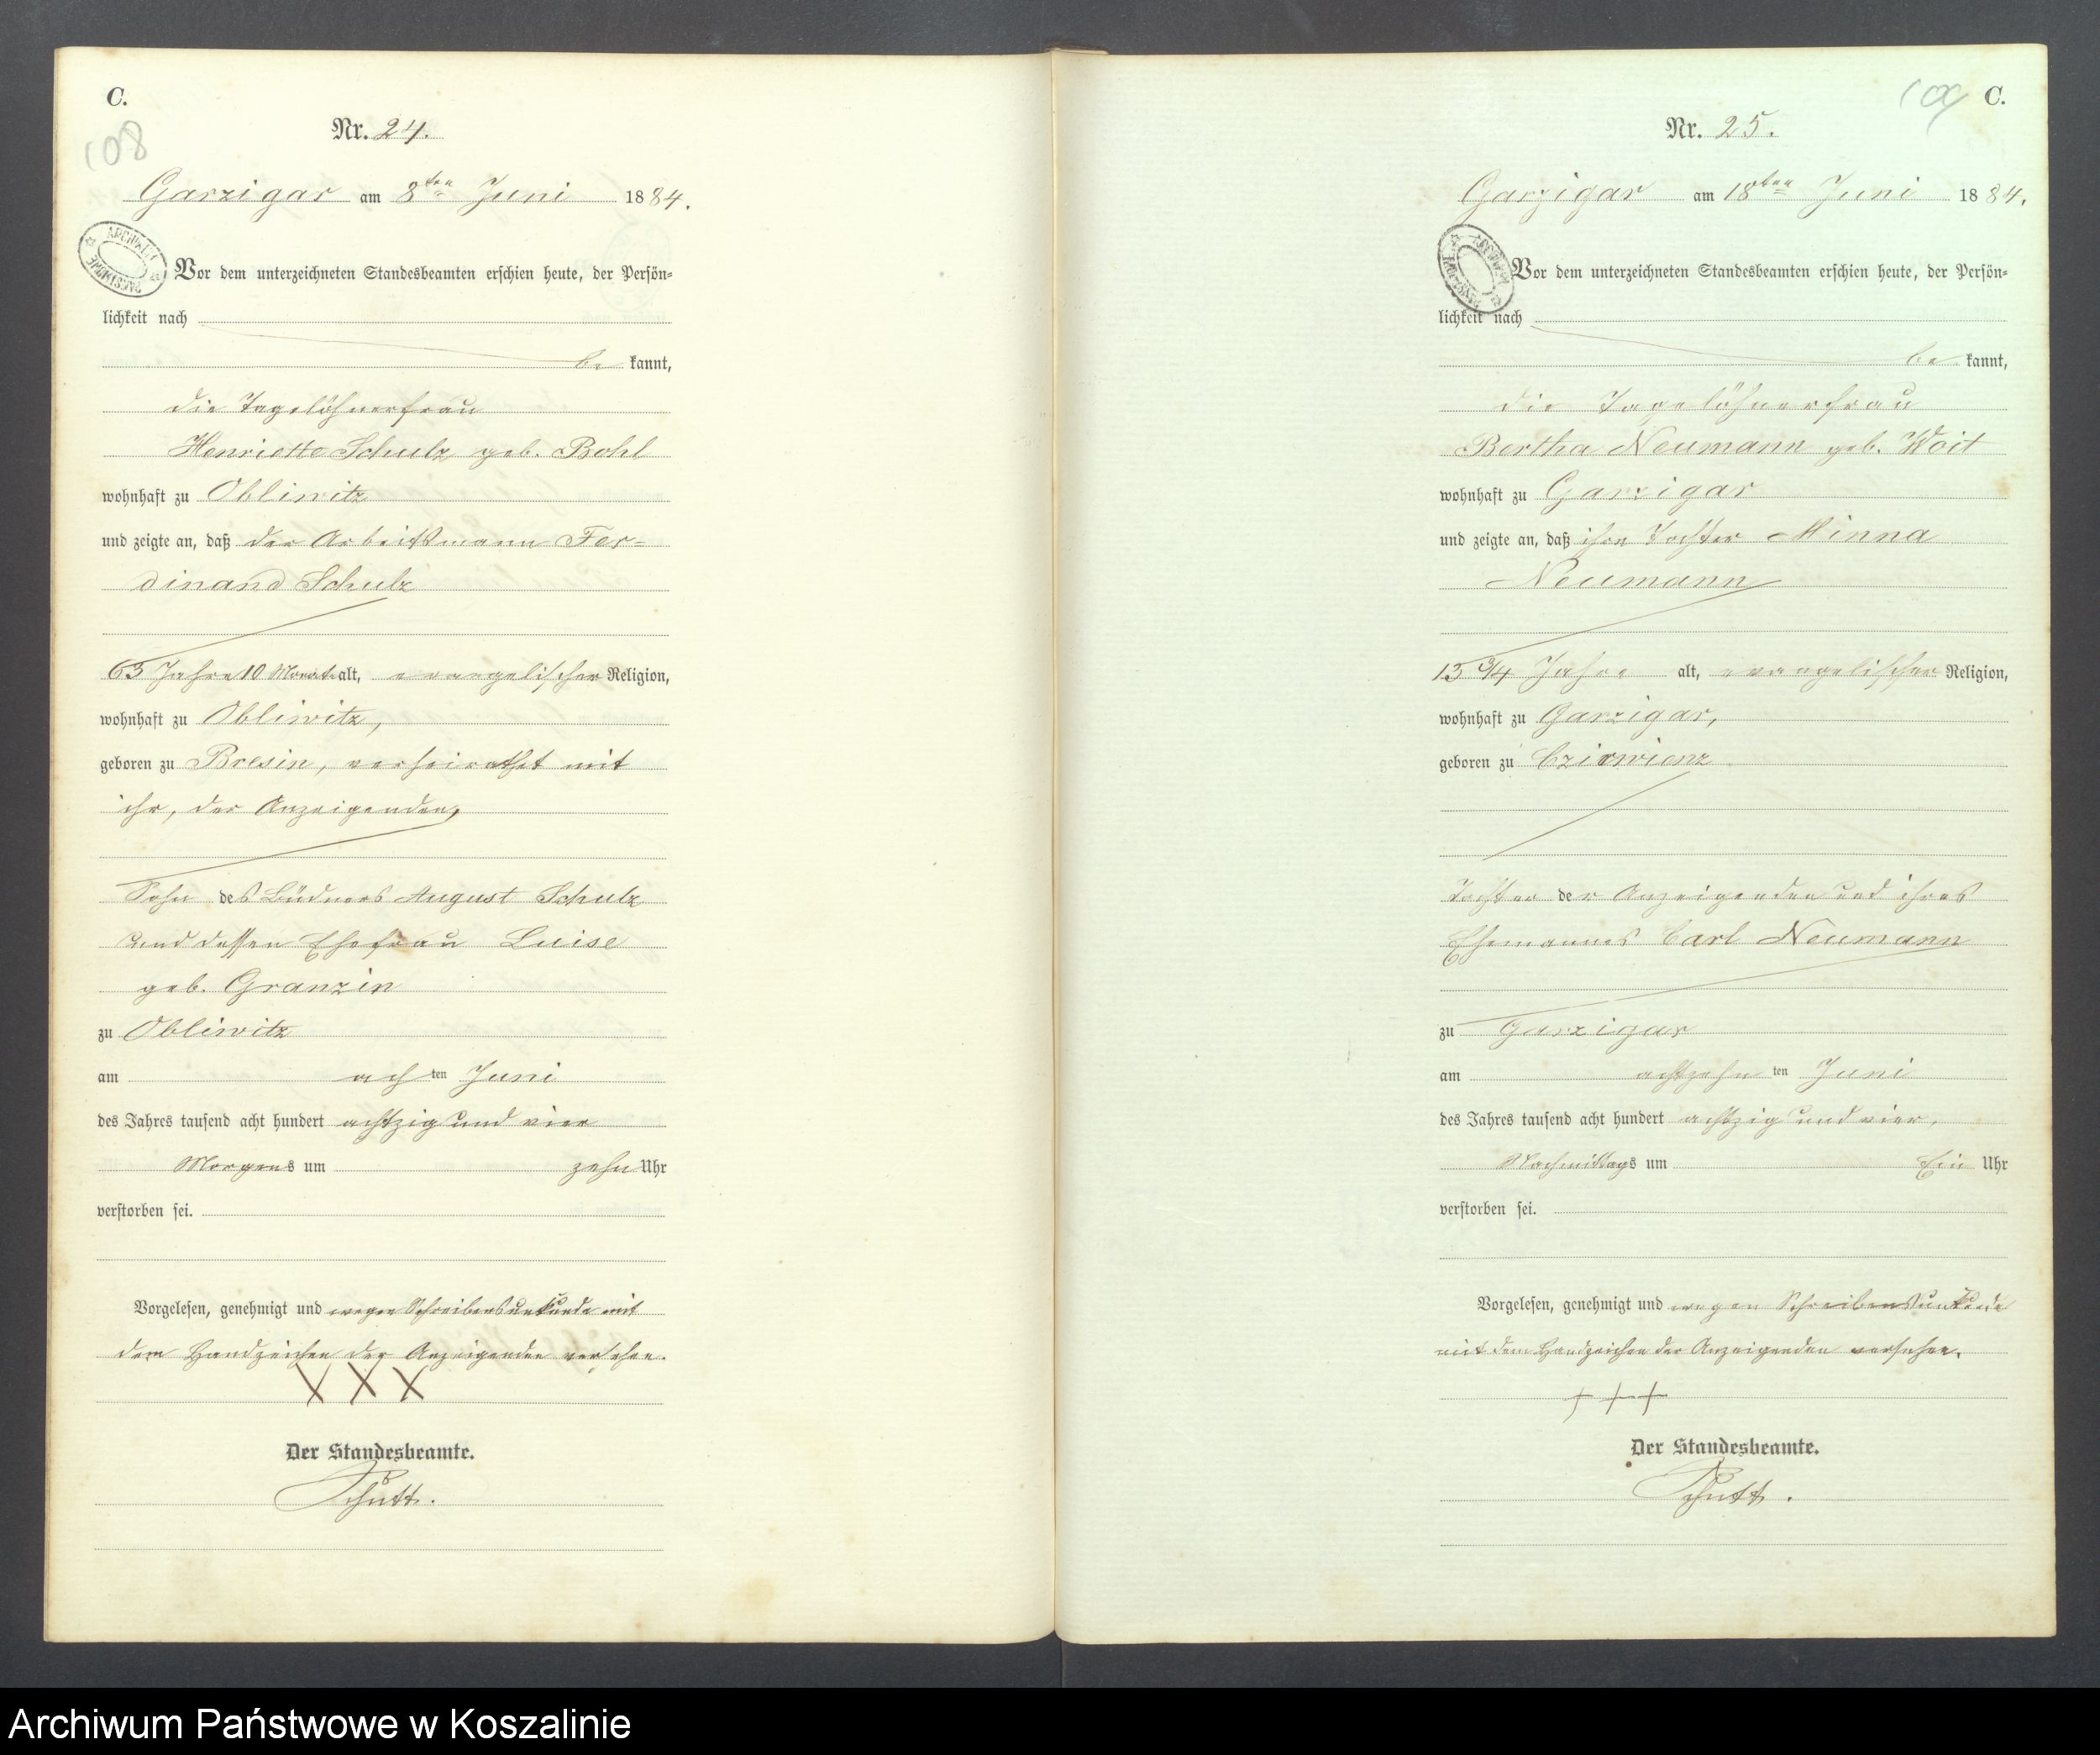 C.
108
Nr. 24.
Garzigar am 8ten Juni 1884.
Vor dem unterzeichneten Standesbeamten erschien heute, der Persön=
lichkeit nach
be kannt,
die Tagelöhnerfrau
Henriette Schulz geb. Bohl
wohnhaft zu Obliwitz
und zeigte an, daß der Arbeitsmann Fer=
dinand Schulz
63 Jahre 10 Monate alt, evangelischer Religion,
wohnhaft zu Obliwitz,
geboren zu Bresin, verheirathet mit
ihr, der Anzeigenden,
Sohn des Büdners August Schulz
und dessen Ehefrau Luise
geb. Granzin
zu Obliwitz
am achten Juni
des Jahres tausend acht hundert achtzig und vier
Morgens um zehn Uhr
verstorben sei.
Vorgelesen, genehmigt und wegen Schreibensunkunde mit
dem Handzeichen der Anzeigenden versehen.
XXX
Der Standesbeamte.
Schütt.
109 C.
Nr. 25.
Garzigar am 18ten Juni 1884.
Vor dem unterzeichneten Standesbeamten erschien heute, der Persön=
lichkeit nach
be kannt,
die Tagelöhnerfrau
Bertha Neumann geb. Woit
wohnhaft zu Garzigar
und zeigte an, daß ihre Tochter Minna
Neumann
13 3/4 Jahre alt, evangelischer Religion,
wohnhaft zu Garzigar,
geboren zu Czirwienz
Tochter der Anzeigenden und ihres
Ehemannes Carl Neumann
zu Garzigar
am achtzehnten Juni
des Jahres tausend acht hundert achtzig und vier,
Nachmittags um Ein Uhr
verstorben sei.
Vorgelesen, genehmigt und wegen Schreibensunkunde
mit dem Handzeichen der Anzeigenden versehen.
+++
Der Standesbeamte.
Schütt.
Archiwum Państwowe w Koszalinie